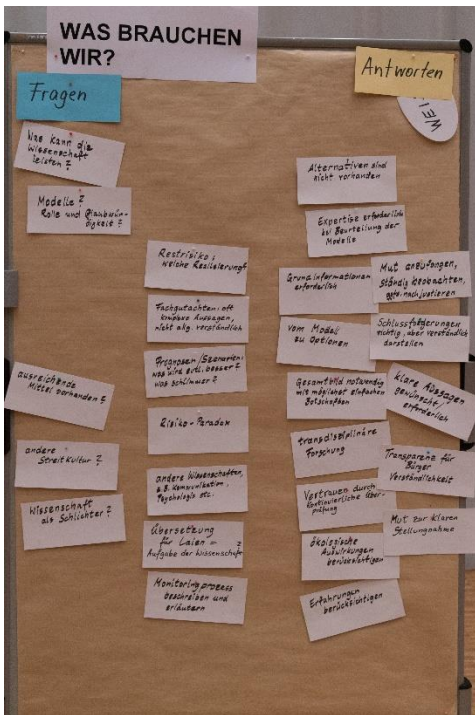 WAS BRAUCHEN
WIR?
Fragen
Was kann die
Wissenschaft
leisten?
Modelle?
Rolle und Glaubwür-
digkeit?
ausreichende
Mittel vorhanden?
andere
Streitkultur?
Wissenschaft
als Schlichter?
Restrisiko:
welche Realisierung?
Fachgutachten: oft
komplexe Aussagen,
nicht allg. verständlich
Prognosen/Szenarien:
was wird evtl. besser?
was schlimmer?
Risiko-Paradox
andere Wissenschaften,
z.B. Kommunikation,
Psychologie etc.
Übersetzung
für Laien = ?
Aufgabe der Wissenschaft
Monitoringprozess
beschreiben und
erläutern
Antworten
WEI
Alternativen sind
nicht vorhanden
Expertise erforderlich
bei Beurteilung der
Modelle
Grundinformationen
erforderlich
vom Modell
zu Optionen
Gesamtbild notwendig
mit möglichst einfachen
Botschaften
transdisziplinäre
Forschung
Vertrauen durch
kontinuierliche Über-
prüfung
ökologische
Auswirkungen
berücksichtigen
Erfahrungen
berücksichtigen
Mut anzufangen,
ständig beobachten,
ggfs. nachjustieren
Schlussfolgerungen
richtig, aber verständlich
darstellen
klare Aussagen
gewünscht/
erforderlich
Transparenz für
Bürger
Verständlichkeit
Mut zur klaren
Stellungnahme